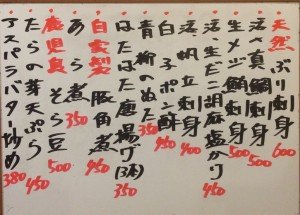 天然ぶり刺身 600
活〆真鯛刺身 500
生メジ鮪刺身 500
活生だこ胡麻塩かり 450
活帆立刺身 400
白子ポン酢 450
青柳のぬた 350
はたはた唐揚げ(3本) 350
自家製豚角煮 450
あら煮 350
鹿児島そら豆 500
たらの芽天ぷら 450
アスパラバター炒め 380